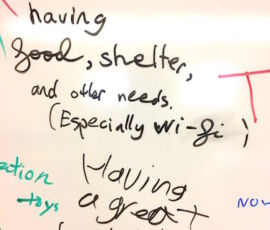 having
food, shelter,
and other needs.
(Especially Wi-fi)
Having
action
a great
toys
NOW